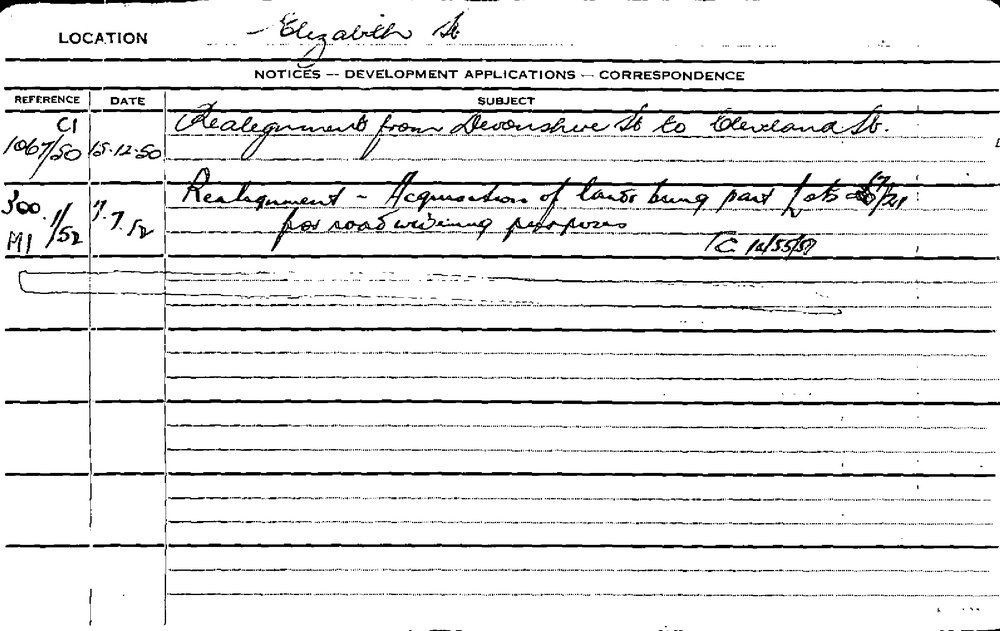 LOCATION Elizabeth St
NOTICES — DEVELOPMENT APPLICATIONS — CORRESPONDENCE
REFERENCE DATE SUBJECT
C1
1067/50 15.12.50 Realignment from Devonshire St to Cleveland St.
300 Realignment - Acquisition of lands being part lots /21
M1 /52 7.7.52 for road widening purposes
TC